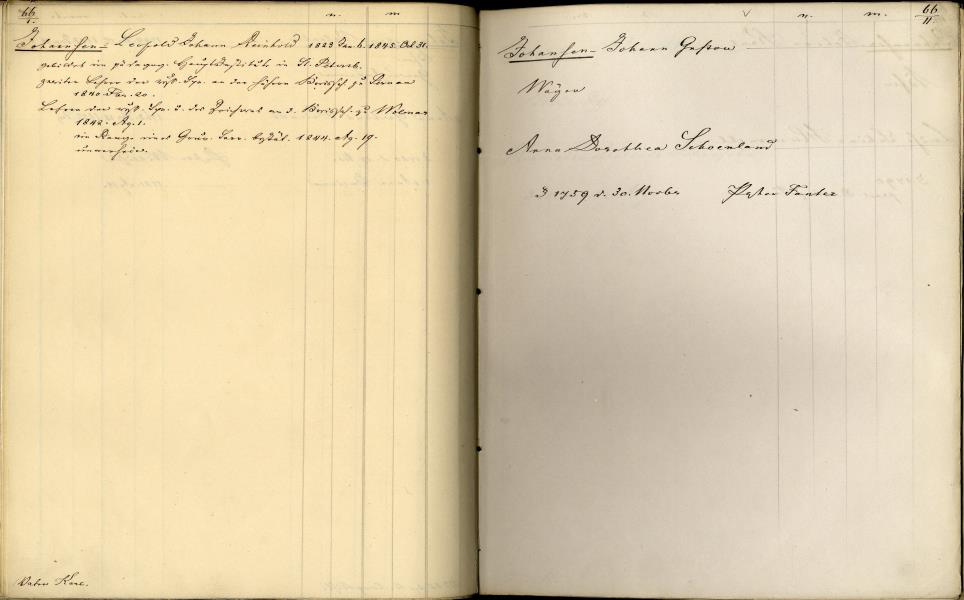 66
I.
n. m
Johannsen - Leopold Johann Reinhold 1823 Jan. 6. 1845. Oct 31.
gebildet im pädagog. Hauptinstitute in St. Petersb.
zweiter Lehrer der russ. Spr. an der höhern Kreissch. zu Pernau
1840. 20.
Lehrer der russ. Spr. u. des Zeichnens an d. Kreissch. zu Wolmar
1842. Ag. 1.
im Range eines Gouv. Secr. bestät. 1844. Ag. 19.
unverheir.
Vater Karl.
66
II.
v n. m.
Johansen - Johann Gustav
Anna Dorothea Schoenland
1759 d. 30. Novbr Pastor